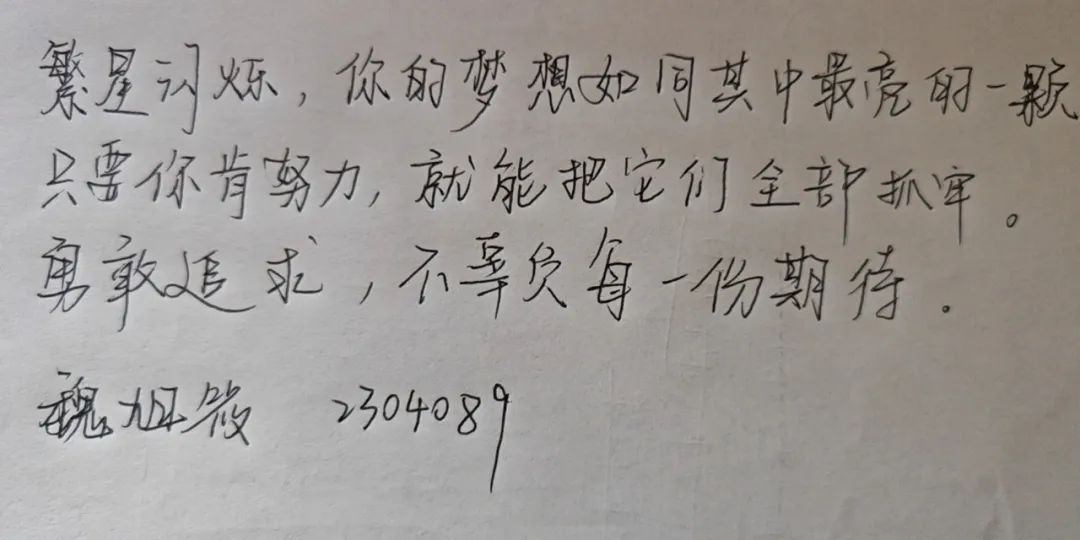 繁星闪烁，你的梦想如同其中最亮的一颗
只要你肯努力，就能把它们全部抓牢。
勇敢追求，不辜负每一份期待.
魏旭筱 2304089